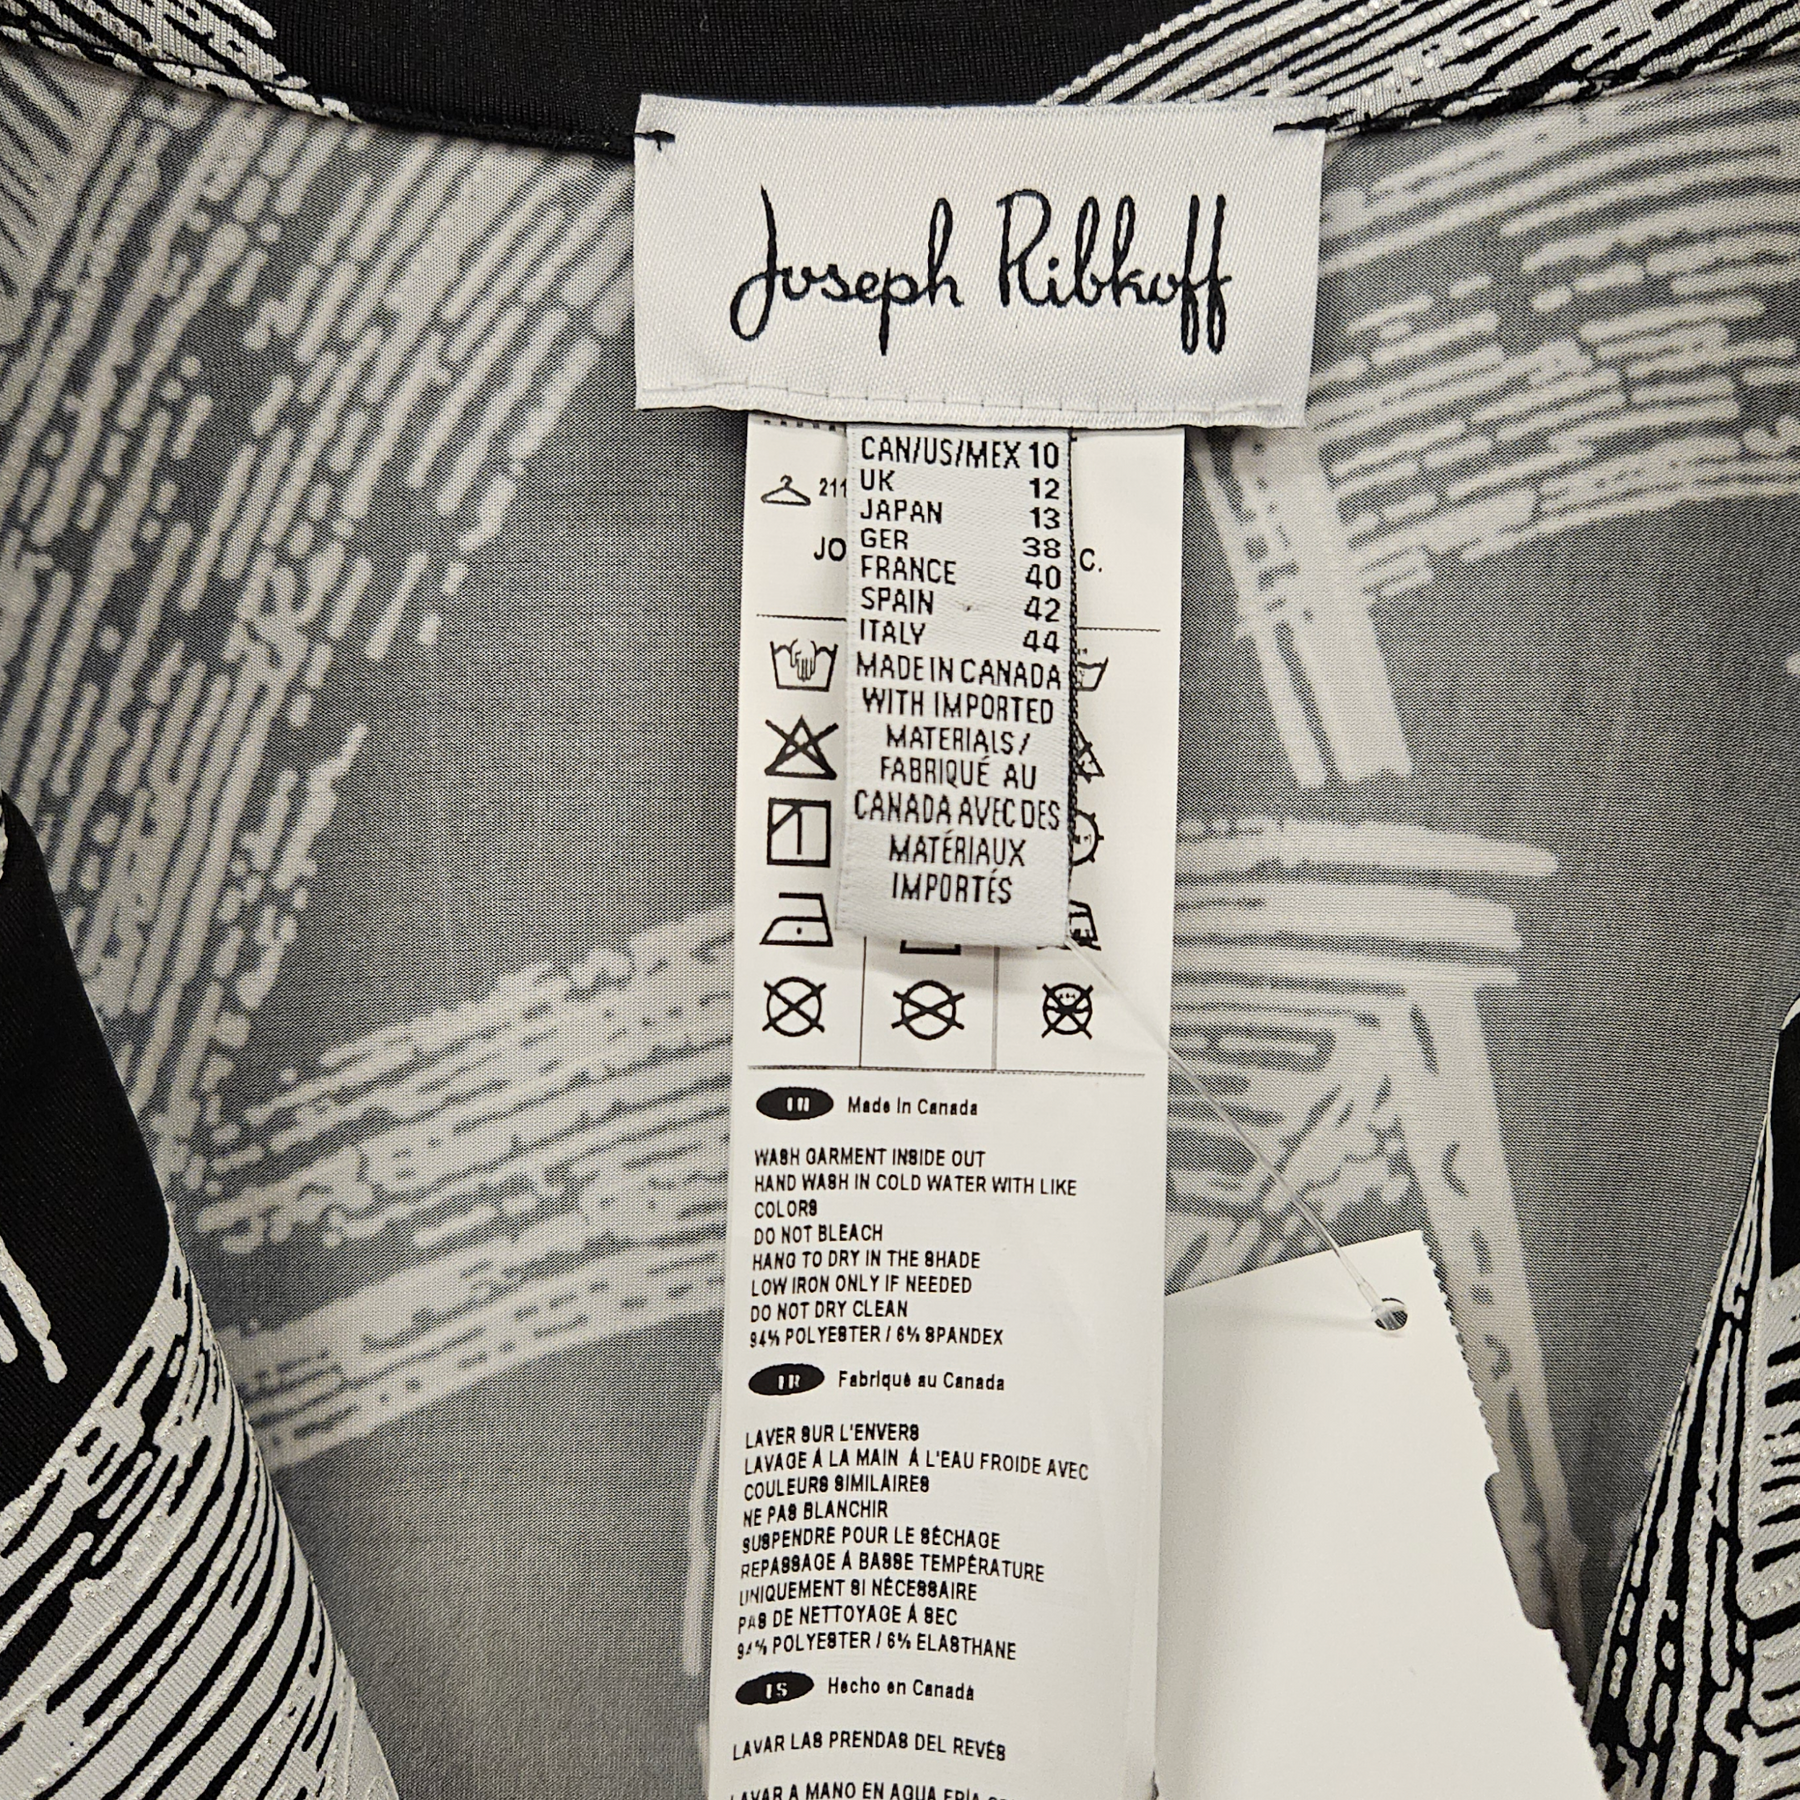 Joseph Ribkoff
CAN/US/MEX 10
UK 12
JAPAN 13
GER 38
FRANCE 40
SPAIN 42
ITALY 44
MADE IN CANADA
WITH IMPORTED
MATERIALS /
FABRIQUÉ AU
CANADA AVEC DES
MATÉRIAUX
IMPORTÉS
211
JO
C.
EN Made In Canada
WASH GARMENT INSIDE OUT
HAND WASH IN COLD WATER WITH LIKE
COLORS
DO NOT BLEACH
HANG TO DRY IN THE SHADE
LOW IRON ONLY IF NEEDED
DO NOT DRY CLEAN
94% POLYESTER / 6% SPANDEX
FR Fabriqué au Canada
LAVER SUR L'ENVERS
LAVAGE À LA MAIN À L'EAU FROIDE AVEC
COULEURS SIMILAIRES
NE PAS BLANCHIR
SUSPENDRE POUR LE SÉCHAGE
REPASSAGE À BASSE TEMPÉRATURE
UNIQUEMENT SI NÉCESSAIRE
PAS DE NETTOYAGE À SEC
94% POLYESTER / 6% ELASTHANE
ES Hecho en Canadá
LAVAR LAS PRENDAS DEL REVÉS
LAVAR A MANO EN AGUA FRÍA